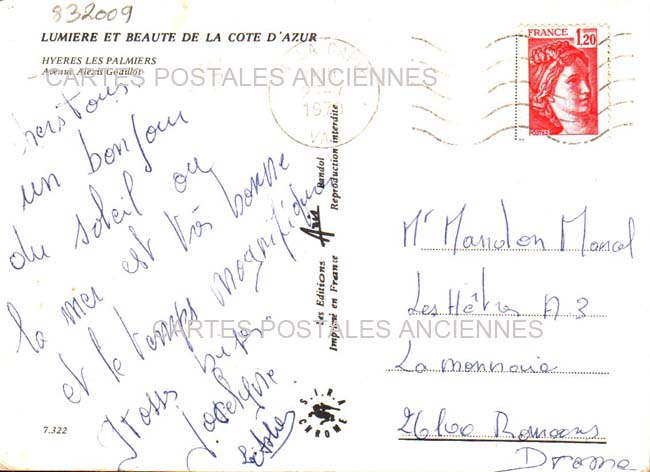 832009
LUMIERE ET BEAUTE DE LA COTE D'AZUR
HYERES LES PALMIERS
Avenue Alexis Godillot
CARTES POSTALES ANCIENNES
FRANCE
1,20
POSTES
un bonjour
du soleil ou
la mer est très bonne
et le temps magnifique
Grosses bises
Jocelyne
Les Editions Aris Bandol
Imprimé en France Reproduction interdite
Mr Mandon Marcel
Les Hêtres A 3
La monnaie
26100 Romans
Drome
CARTES POSTALES ANCIENNES
SIRA
CHROME
7.322